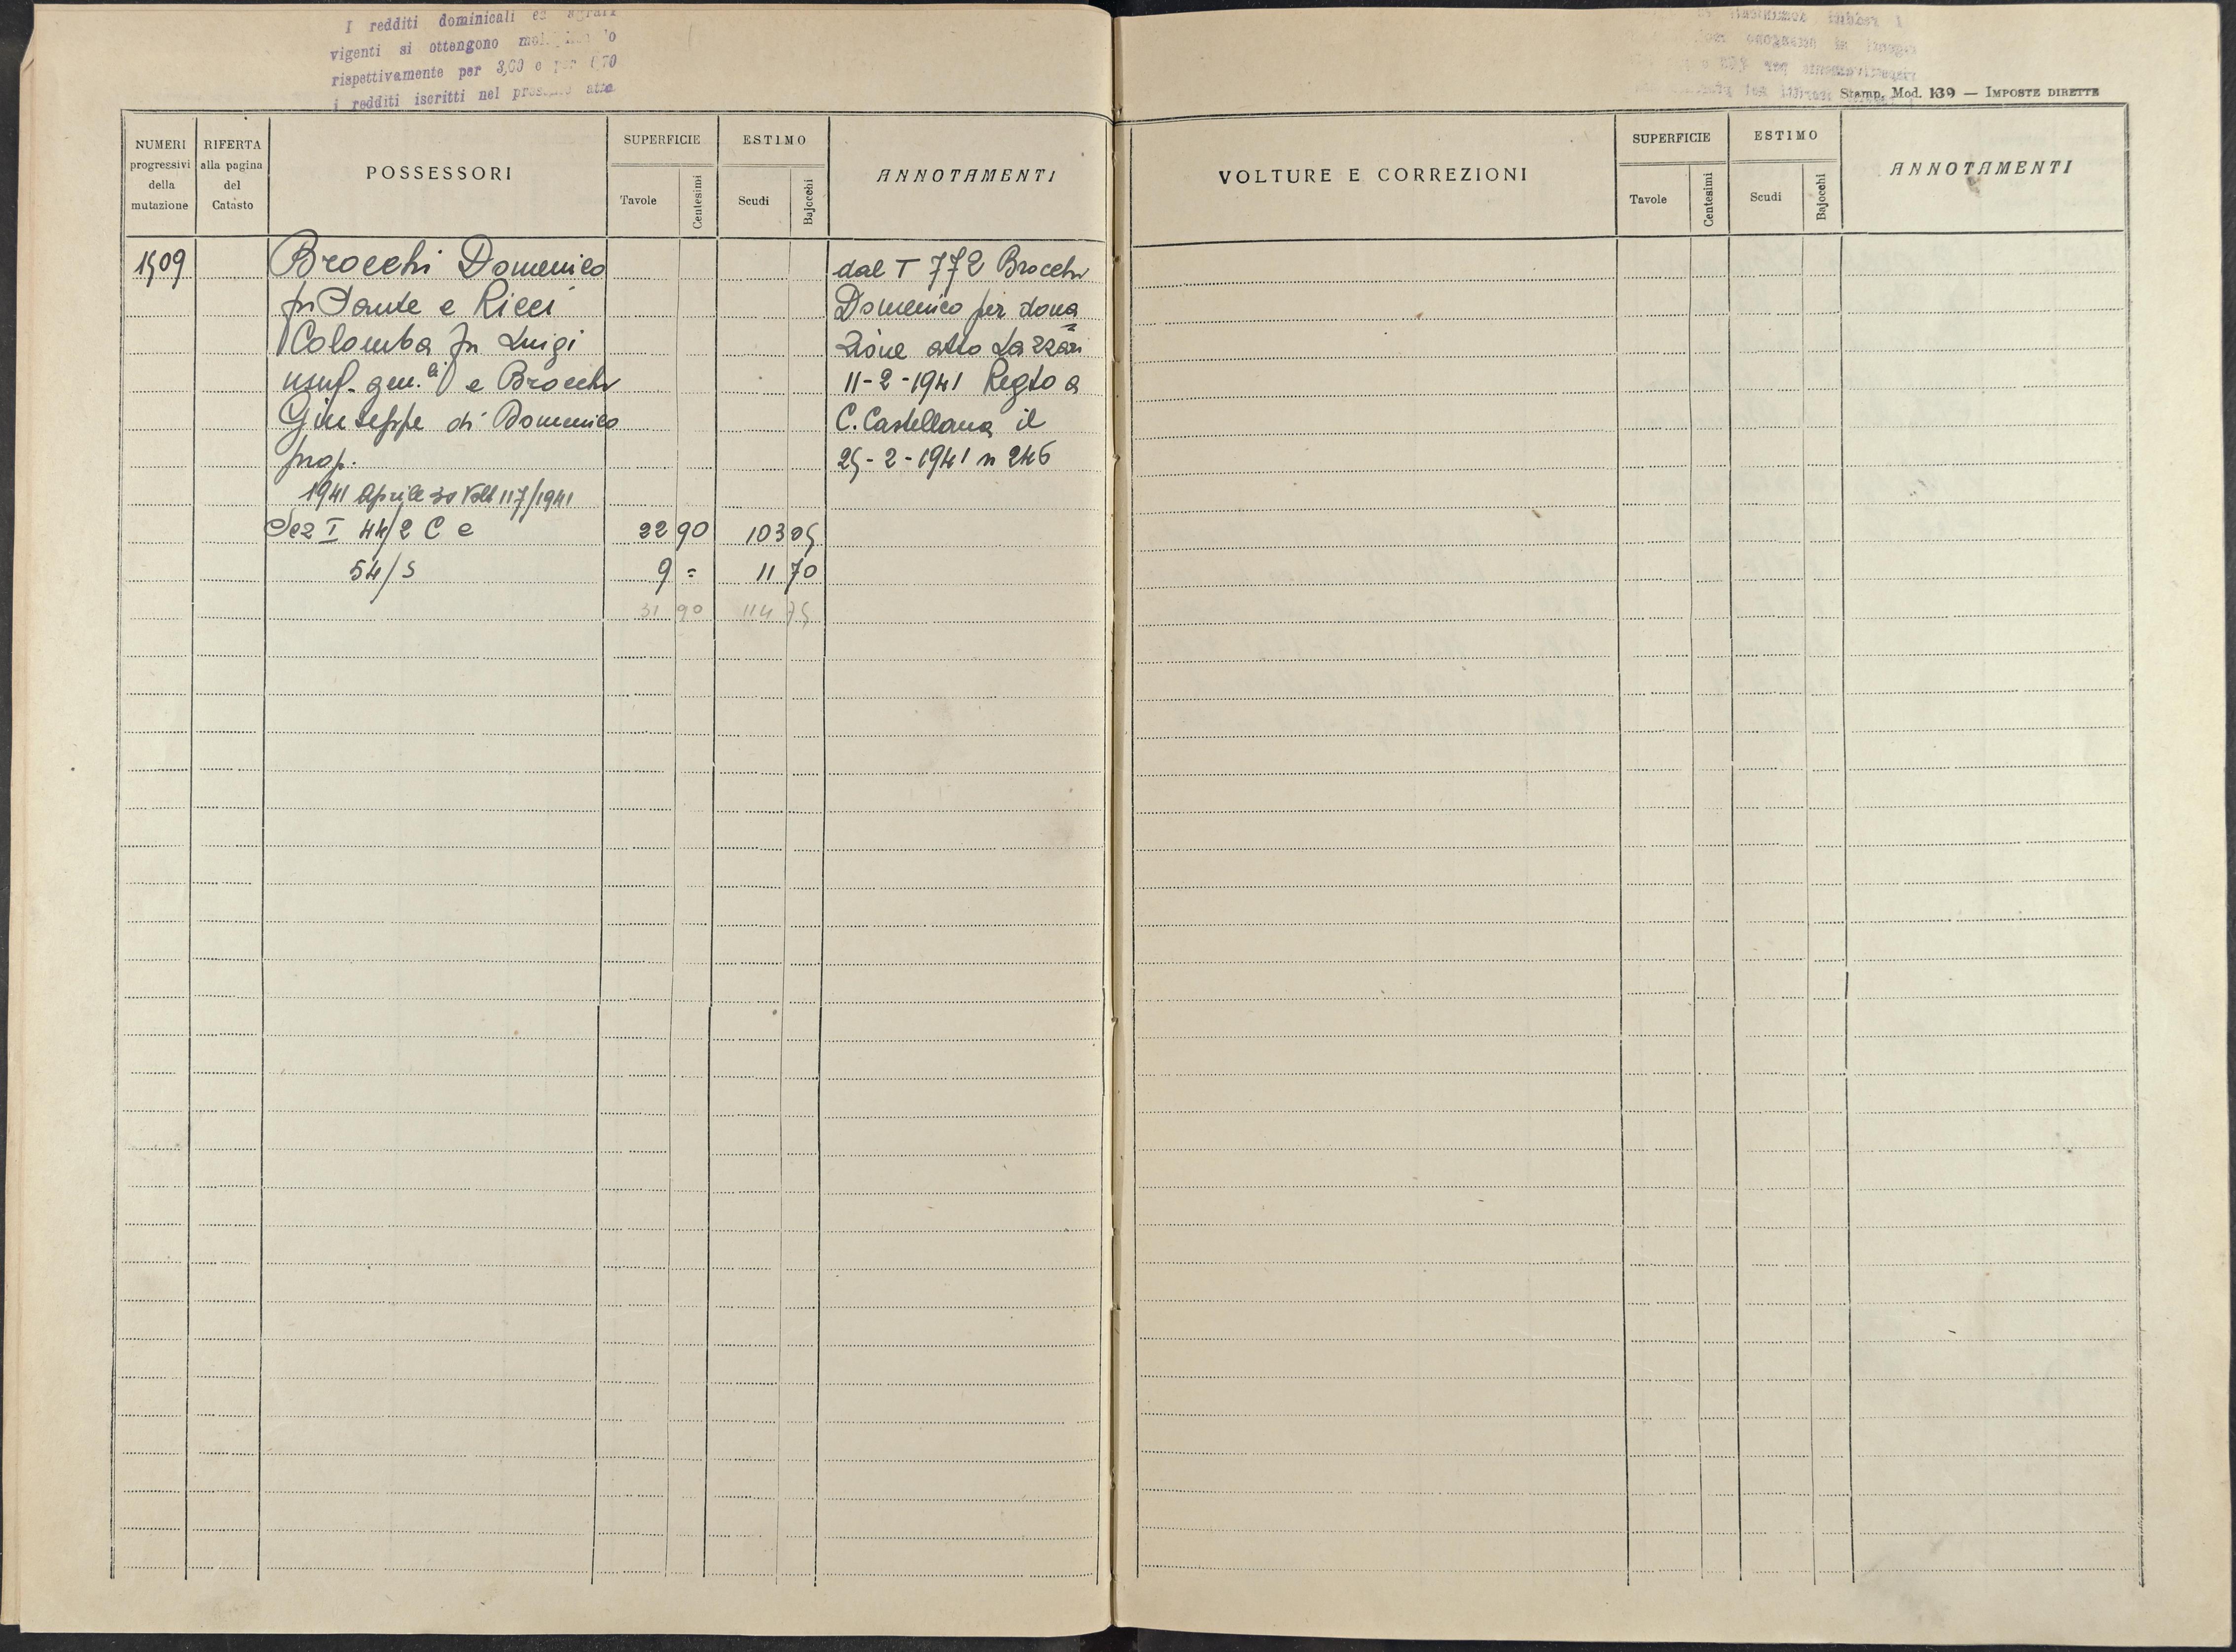 I redditi dominicali ed agrari
vigenti si ottengono
rispettivamente per 3,60 e per
i redditi iscritti nel atto
Stamp. Mod. 139 — IMPOSTE DIRETTE
NUMERI progressivi della mutazione
RIFERTA alla pagina del Catasto
POSSESSORI
SUPERFICIE
Tavole
Centesimi
ESTIMO
Scudi
Bajocchi
ANNOTAMENTI
VOLTURE E CORREZIONI
SUPERFICIE
Tavole
Centesimi
ESTIMO
Scudi
Bajocchi
ANNOTAMENTI
1509 Brocchi Domenico
fu Dante e Ricci
Colomba fu Luigi
usuf. gen.li e Brocchi
Giuseppe di Domenico
prop.
1941 Aprile 30 Volt 117/1941
Sez I 44/2 C e 22 90 103 05
54/S 9 = 11 70
31 90 114 75
dal T 772 Brocchi
Domenico per dona
zione atto Lazzari
11-2-1941 Regto a
C. Castellana il
25-2-1941 n 246